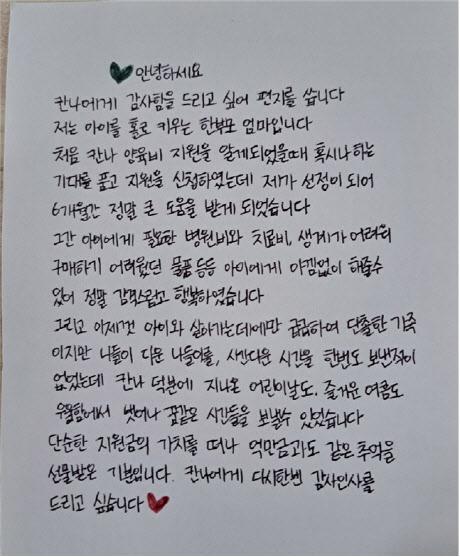 안녕하세요
칸나에게 감사함을 드리고 싶어 편지를 씁니다
저는 아이를 홀로 키우는 한부모 엄마입니다
처음 칸나 양육비 지원을 알게되었을때 혹시나 하는
기대를 품고 지원을 신청하였는데 제가 선정이 되어
6개월간 정말 큰 도움을 받게 되었습니다
그간 아이에게 필요한 병원비와 치료비, 생계가 어려워
구매하기 어려웠던 물품 등등 아이에게 아낌없이 해줄수
있어 정말 감격스럽고 행복하였습니다
그리고 이제껏 아이와 살아가는데에만 급급하여 단출한 가족
이지만 나들이 다운 나들이를, 시간다운 시간을 한번도 보낸적이
없었는데 칸나 덕분에 지나온 어린이날도, 즐거운 여름도
우월함에서 벗어나 꿈같은 시간들을 보낼수 있었습니다
단순한 지원금의 가치를 떠나 억만금과도 같은 추억을
선물받은 기분입니다. 칸나에게 다시한번 감사인사를
드리고 싶습니다